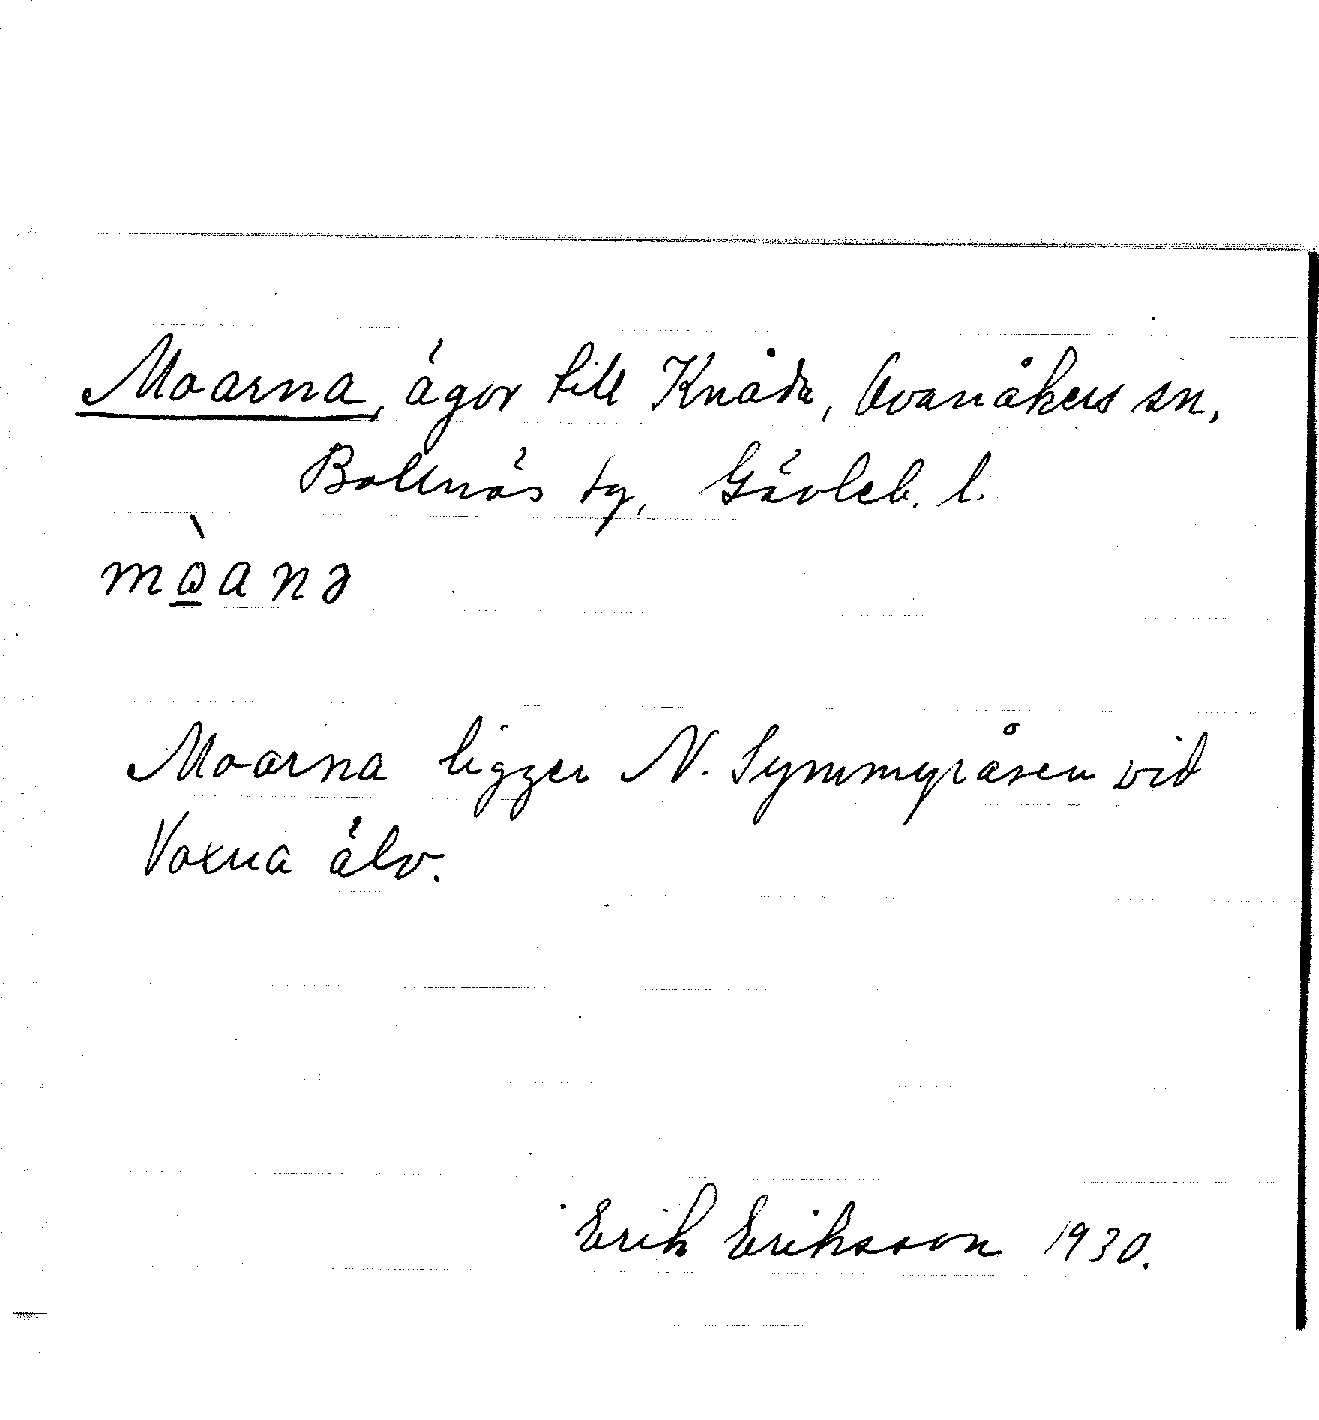 Moarna, ägor till Knåda, Ovanåkers sn,
Bollnäs tg, Gävleb. l.
mò̱anə
Moarna ligger N. Symmyråsen vid
Voxna älv.
Erik Eriksson 1930.